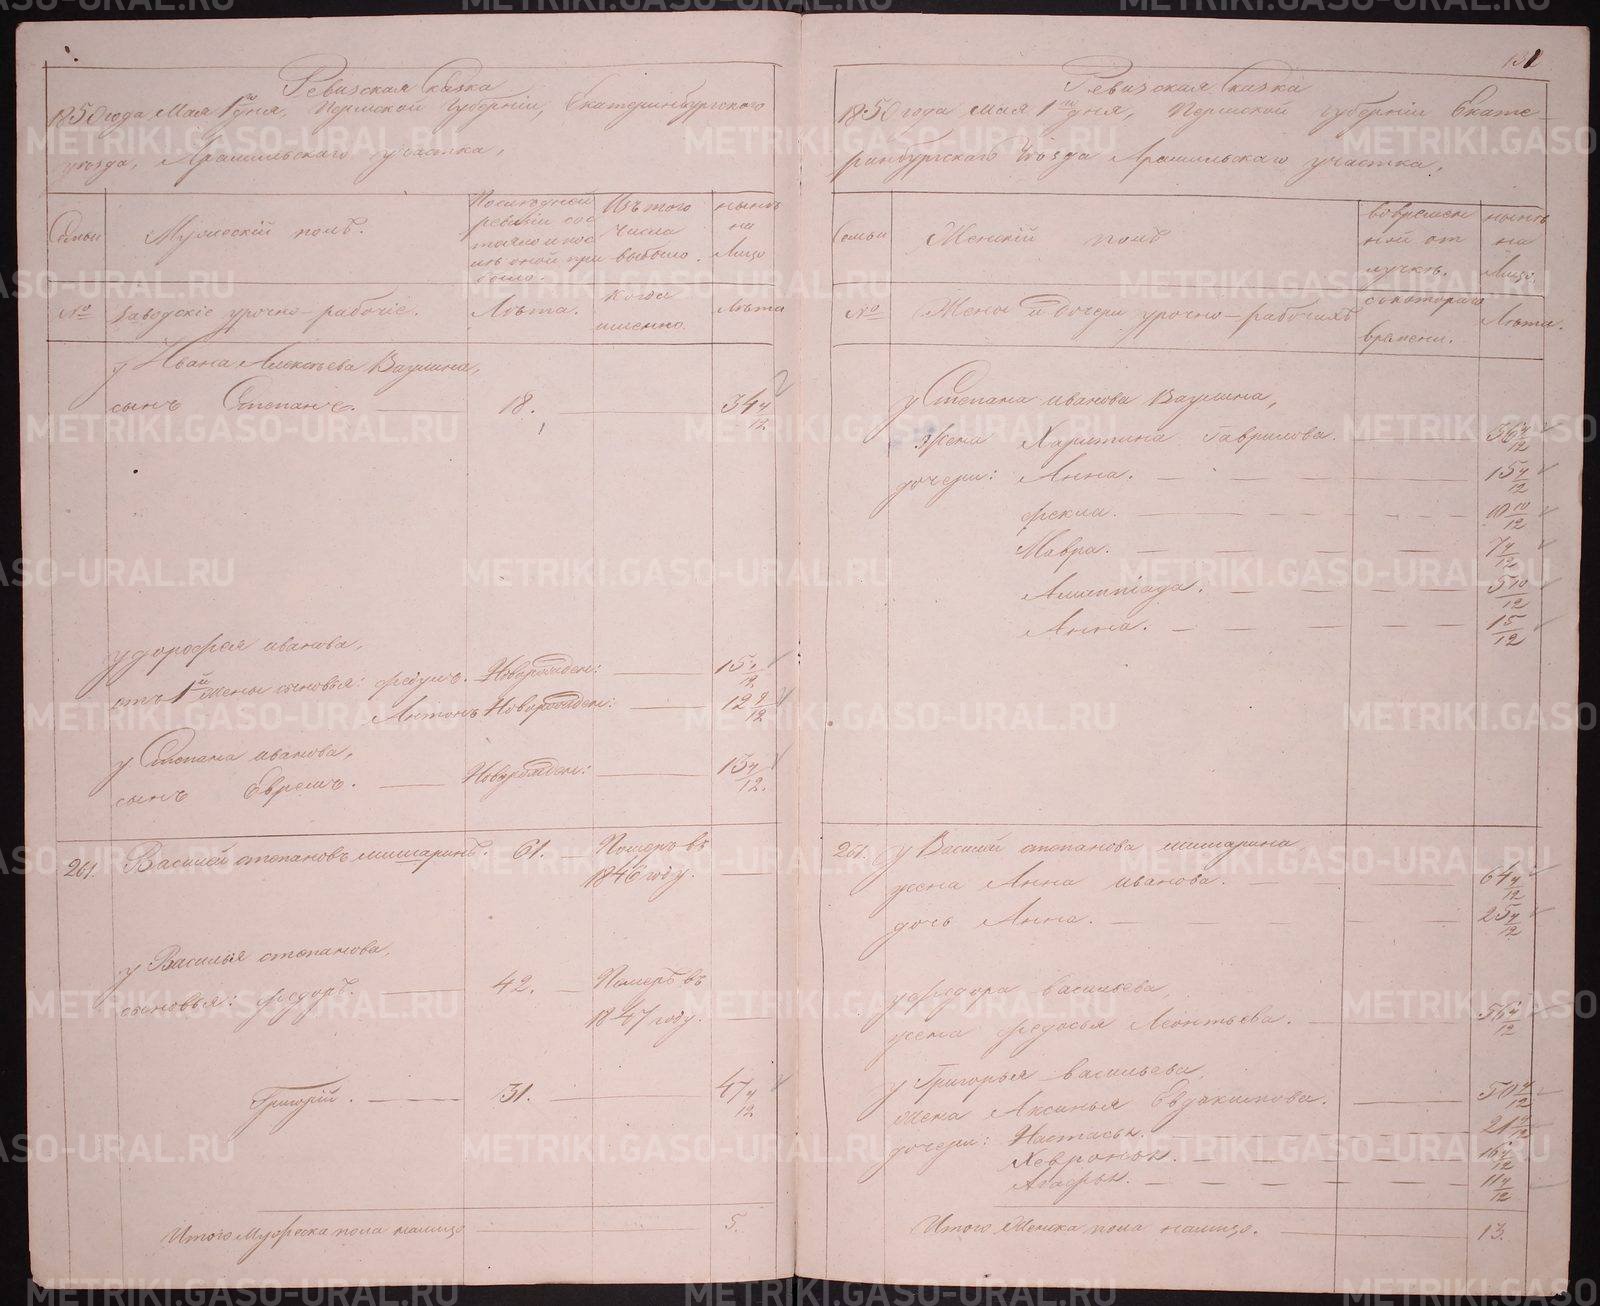 Ревизская Сказка
1850 года Мая 1го дня, Пермской Губерніи, Екатеринбургского
уезда, Арамильскаго участка,
Семьи
Мужескій полъ.
Последней ревизіи состояло и после оной прибыло.
Изъ того числа выбыло.
ныне на Лицо
№
Заводскіе урочно-рабочіе.
Лета.
Когда именно.
Лета
у Ивана Алексеева
сынъ Степанъ. 18. 34 4/12
у дорофея иванова,
отъ 1й жены сыновья: Новорожден: 15
Антонъ Новорожден: 12 9/12
у Степана иванова,
сынъ Ефремъ. Новорожден: 13 4/12.
261. Василей степановъ мишаринъ. 61. Померъ въ
1846 году.
у Василья степанова,
сыновья: Федоръ. 42. Померъ въ
1847 году.
Григорій. 31. 47 4/12
Итого Мужеска пола налицо 5.
131
Ревизская Сказка
1850 года Мая 1го дня, Пермской губерніи Екате-
ринбургскаго Уезда Арамильскаго участка,
Семьи
Женскій полъ
во временной отлучке.
ныне на Лицо.
№
Жены и дочери урочно-рабочихъ
съ котораго времени.
Лета.
у Степана иванова
Жена Харитина Гаврилова. 36 4/12
дочери: Анна. 15 4/12
Фекла. 10 10/12
Мавра. 7 4/12
5 10/12
Анна. 15/12
261. у Василья степанова мишарина
жена Анна иванова. 64 4/12
дочь Анна. 25 4/12
у Федора васильева,
жена Федосья Леонтьева. 56 4/12
у Григорья васильева,
жена Аксинья Евдокимова. 50 4/12
дочери: Настасья. 21 4/12
Хевронья. 16 4/12
Агафья. 11 4/12
Итого Женска пола налицо. 13.
METRIKI.GASO-URAL.RU